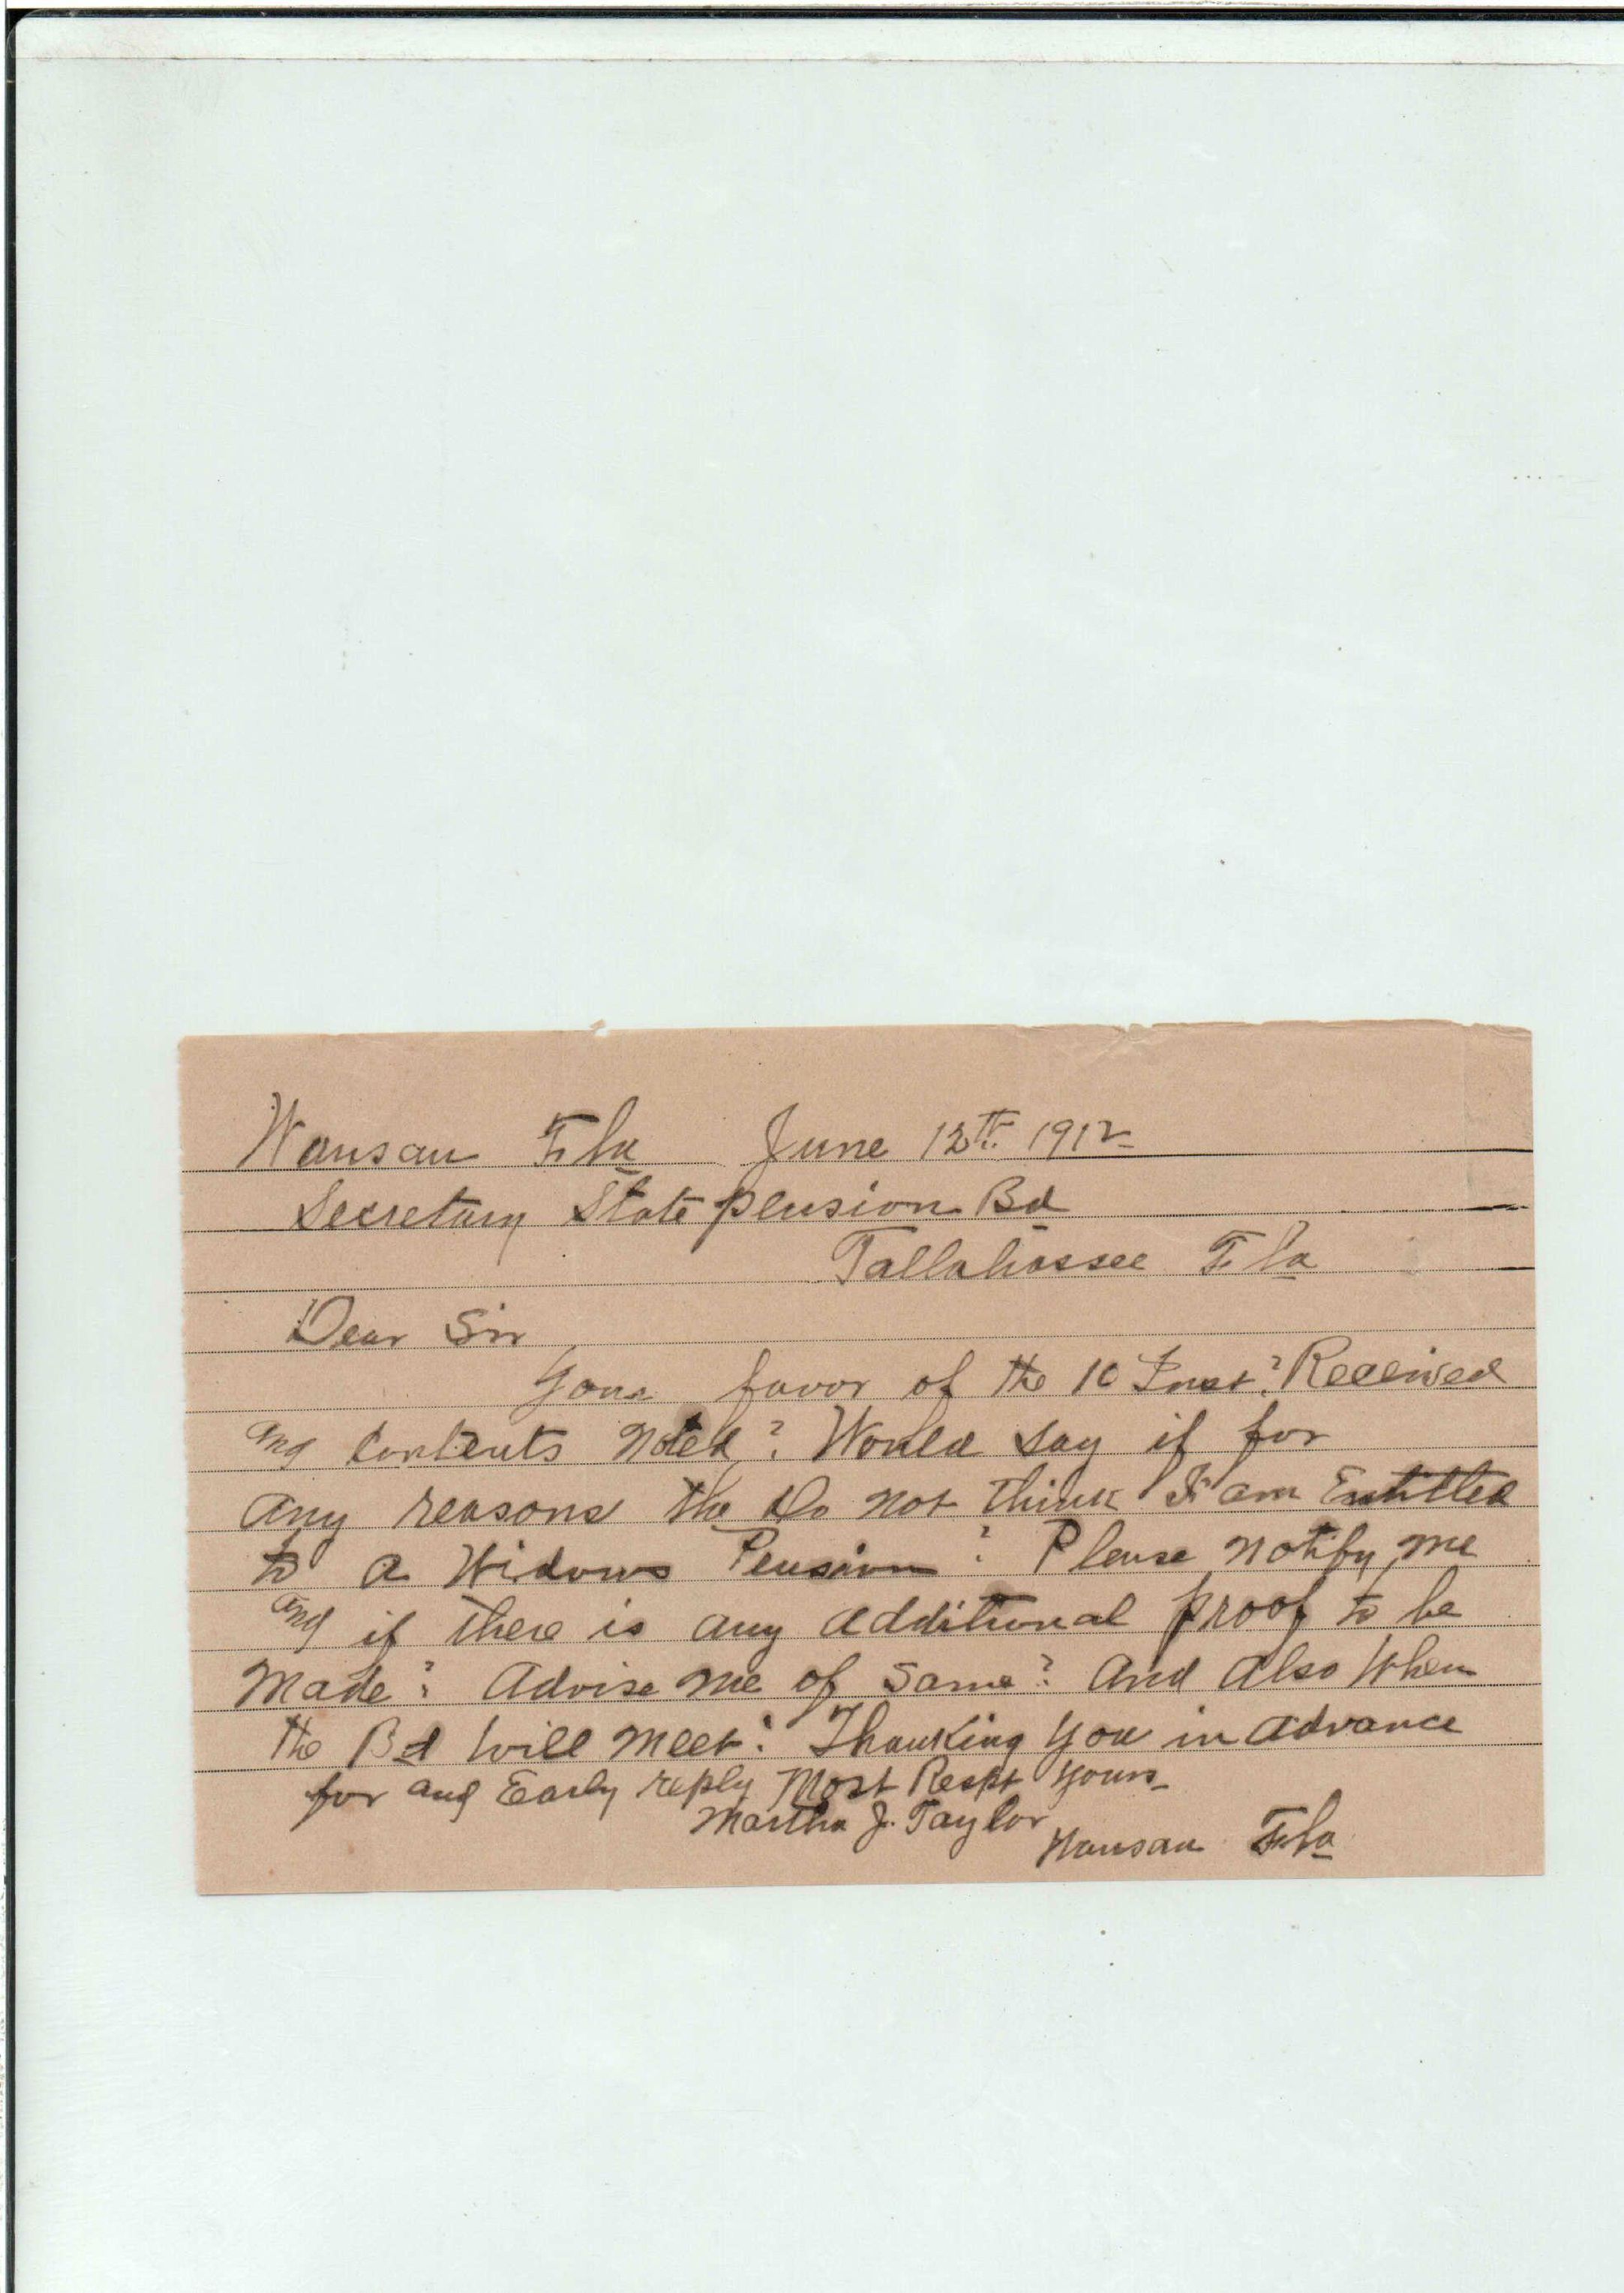 Wausau Fla June 12th 1912
Secretary State pension Bd
Tallahassee Fla
Dear Sir
Your favor of the 10 Inst? Received
and Contents Noted? Would Say if for
any reasons the Do not think I am Entitled
to a Widows Pension? Please notify me
and if there is any additional proof to be
Made? Advise me of Same? And Also When
the Bd Will Meet? Thanking You in advance
for and Early reply Most Respt Yours
Martha J. Taylor
Wausau Fla